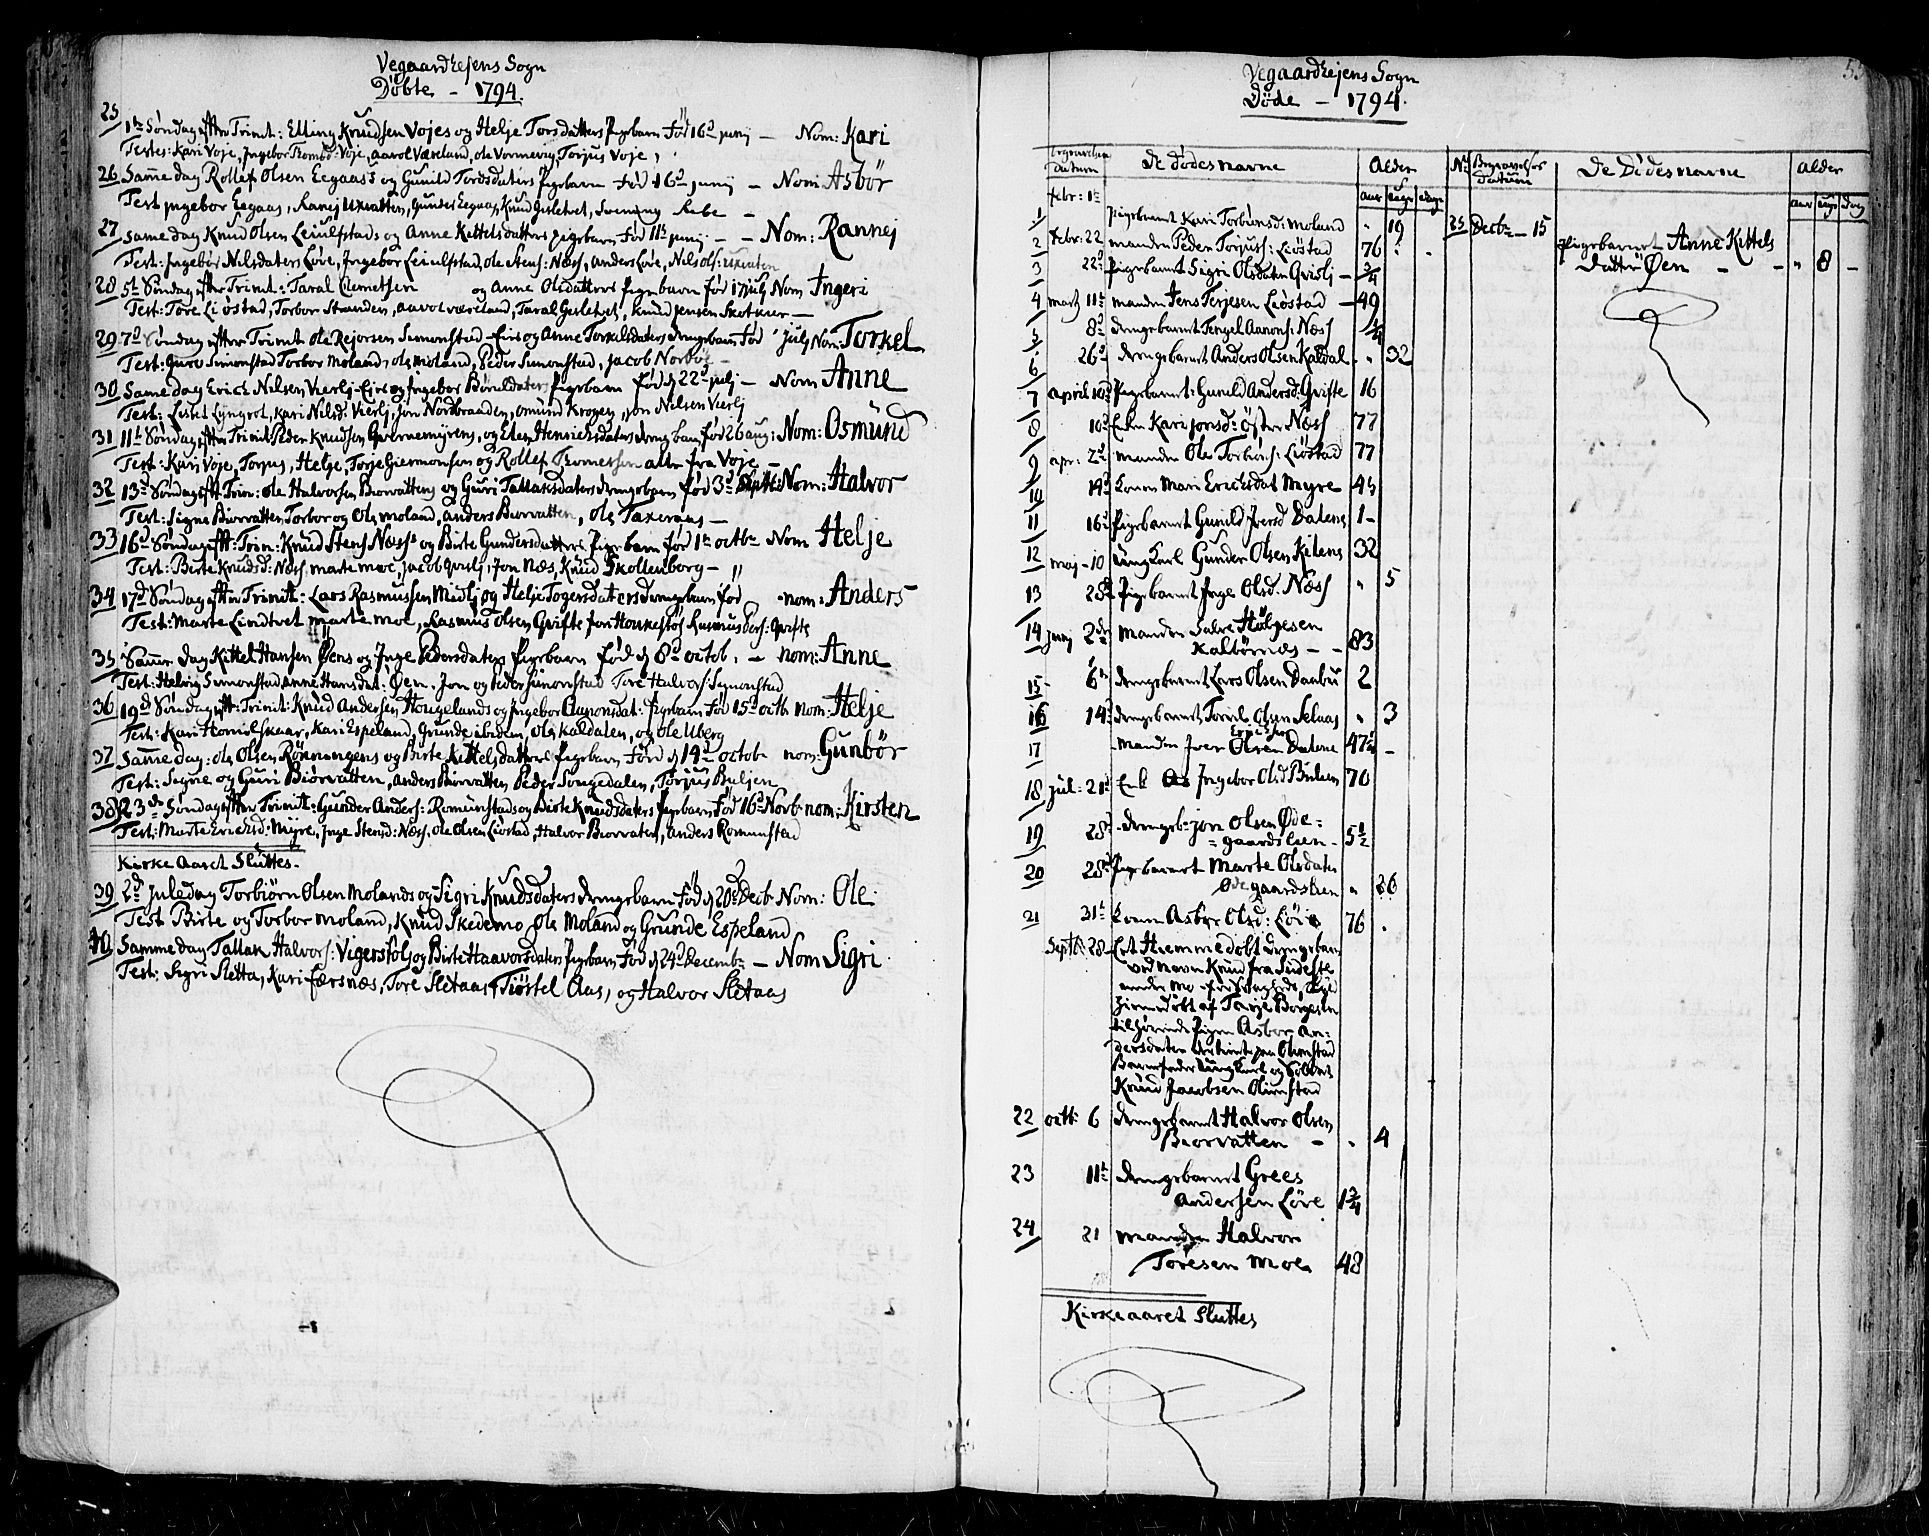 Vegaardhejens Sogn
Døbte - 1794.
25
1te Søndag efter Trinit: Elling Knudsen Vojes og Helje Torsdatters Pigebarn Fød 16d junij - Nom: Kari
Testes: Kari Voje, Ingebor Voje, Aavol Væreland, Ole Vormevig, Torjus Voje,
26 Samme dag Rollef Olsen Eegaas's og Gunild Tordsdatters Pigebarn Fød 16d junij - Nom Asbør
Test Ingebor Eegaas, Ranej Uxvatten, Gunder Eegaas, Knud Gesletvet, Svening Rebe -
27 Same dag Knud Olsen Leiulfstads og Anne Kittelsdatters pigebarn Fød 11te junij - - Nom: Rannej
Test: Ingebør Nilsdater Løve, Ingebor Leiulfstad, Ole Stens: Næss, Anders Løve, Nils Ols: Uxvatten
28 5te Søndag efter Trinit: Taral Clemetsen og Anne Olsdatters Pigebarn fød 17 julj Nom Ingeri
Test: Tore Liøstad, Torbor Stranden, Aavol Væreland, Taral Gesletvet, Knud Jensen
29 7d Søndag efter Trinit Ole Rejersen Simonstad - Eie og Anne Torkelsdaters drengebarn Fød julj Nom: Torkel
Test: Guro Simonstad Torbor Moland, Ole Moland, Peder Simonstad, Jacob
30 Same dag Erich Nilsen Vierlj-Eie og Ingebor Pigebarn fød d 22d julj - Nom Anne
Test: Lisbet Lyngrot, Kari Nilsd: Vierlj, Jon Nordbraaden, Omund Krogen, Jon Nilsen Vierlj
31 11te Søndag efter Trinit Peder Knudsen og Elen Henrichsdaters dreng barn fød 26 aug: Nom: Osmund
Test: Kari Voje, Torjus, Helje, Torje Giermonsen og Rollef alle fra Voje -
32 13d Søndag efter Trin: Ole Halvorsen Biorvattens og Guri Tallaksdaters drengebarn fød 3d Septb: Nom: Halvor
Test: Signe Biorvatten Torbor og Ole Moland, Anders Biorvatten, Ole -
33 16d Søndag eft: Trin: Knud Stens Næss's og Birte Gundersdatters Pigebarn fød 1te octbr Nom Helje
Test: Birte Knudsd: Næss, Marte Moe, Jacob Qvislj, Jon Næs, Knud Skollenborg -
34 17d Søndag efter Trinit: Lars Rasmussen Midlj og Helje Togersdaters drengebarn fød - nom: Anders
Test: Marte Lindtvet Marte Moe, Rasmus Olsen Qvifte Rasmus Pers: Qvifte
35 Samme dag Kittel Hansen Øens og Inge Pedersdaters Pigebarn fød d 8d octob: - nom: Anne
Test: Helvig Simonstad, Anne Hansdat: Øen, Jon og Peder Simonstad Tore Halvors: Symonstad
36 19d Søndag eft: Trinit: Knud Andersen Hougelands og Ingebor Aanonsdat: Pigebarn Fød 15d octb nom: Helje
Test: Kari Homelskaar, Kari Espeland, Grunde ibidem, Ole Kaldalen, og Ole Uberg
37 Samme dag: Ole Olsen Rønningens og Birte Kittelsdatters Pigebarn Fød d 14d octob nom: Gunbør
Test: Signe og Guri Biørvatten, Anders Biørvatten Peder Songedalen, Torjus Buljen
38 23de Søndag efter Trinit: Gunder Anders: Romunstads og Birte Knudsdaters Pigebarn Fød 16d Novb nom: Kirsten
Test: Marte Erichsd: Myre, Inge Stensd: Næss, Ole Olsen Liøstad, Halvor Biorvaten, Anders Romunstad
Kirke Aaret Sluttes.
39 2d Juledag Torbiørn Olsen Molands og Sigri Knudsdaters drengebarn Fød d 20d Decb Nom: Ole
Test Birte og Torbor Moland, Knud Skedemo Ole Moland og Grunde Espeland
40 Samme dag Tallak Halvors: Vigerstøl og Birte Haavorsdaters Pigebarn Fød d 24d Decembr - Nom Sigri
Test: Sigri Sletta, Kari Færsnæs, Tore Sletaas, Tiøstel Aas, og Halvor Sletaas
Vegaardhejens Sogn
Døde - 1794.
Begravelses Datum De Dødes navne Alder
Aar Uger Dage
1 febr: 1te Pigebarnet Kari Torbiørnsd: Moland " 19
2 febr: 22 Manden Peder Torjus: Liøstad 76
3 22d Pigebarnet Sigri Olsdater Qvislj - 3/4
4 Martz 11te Manden Jens Terjesen Liøstad - 49
5 8d drengebarnet Tengel Aanons: Næss 1/4
6 26d drengebarnet Anders Olsen Kaldal . " 32
7 april 10d Pigebarnet: Gunild Andersd: Qvifte 16
8 10d Enken Kari Jonsd: Øster Næss 77
9 apr: 2d Manden Ole Torbiøns: Liøstad 77
10 19d Konen Mari Erichsdat Myre 45
11 16d Pigebarnet Gunild Iversd Datens 1 -
12 Maj - 10 Ung Karl Gunder Olsen Kilens 32
13 28d Pigebarnet Inge Olsd: Næss " 5
14 Junj 2den Manden Salve Hølgesen
Kalbørnæs - - 83
15 6te drengebarnet Lars Olsen Daabu 2
16 14d drengebarnet Torvil Olsen Selaas " 3
17 Manden Iver Olsen Datene 47½ -
18 Jul: 21d Enk: Ingebor Olsd Buleen 70
19 28d drengeb: Jon Olsen Øde=
=gaardslien - 5½
20 28d Pigebarnet Marte Olsdater
Ødegaardslien " 26
21 31te Konen Asbør Olsd: Løve 76
Septb: 28 Et Hiemmedøbt drengebarn
ved Navn Knud fra Sideste
Hiemedøbt af Terje Børgesen
tilhørende Pigen Asbor An=
dersdater paa Olimstad
Barnefader Ung Karl og Soldat
Knud Jacobsen Olimstad
22 octb: 6 drengebarnet Halvor Olsen
Biorvatten - . 4
23 11te drengebarnet Grees
Andersen Løve 1¾
24 21 Manden Halvor
Toresen Moe 48
Kirkeaaret Sluttes
55
No Begravelses Datum De Dødes navne Alder
Aar Uger Dag
25 Decbr - 15 Pigebarnet Anne Kittels
datter Øen - - " 8 -